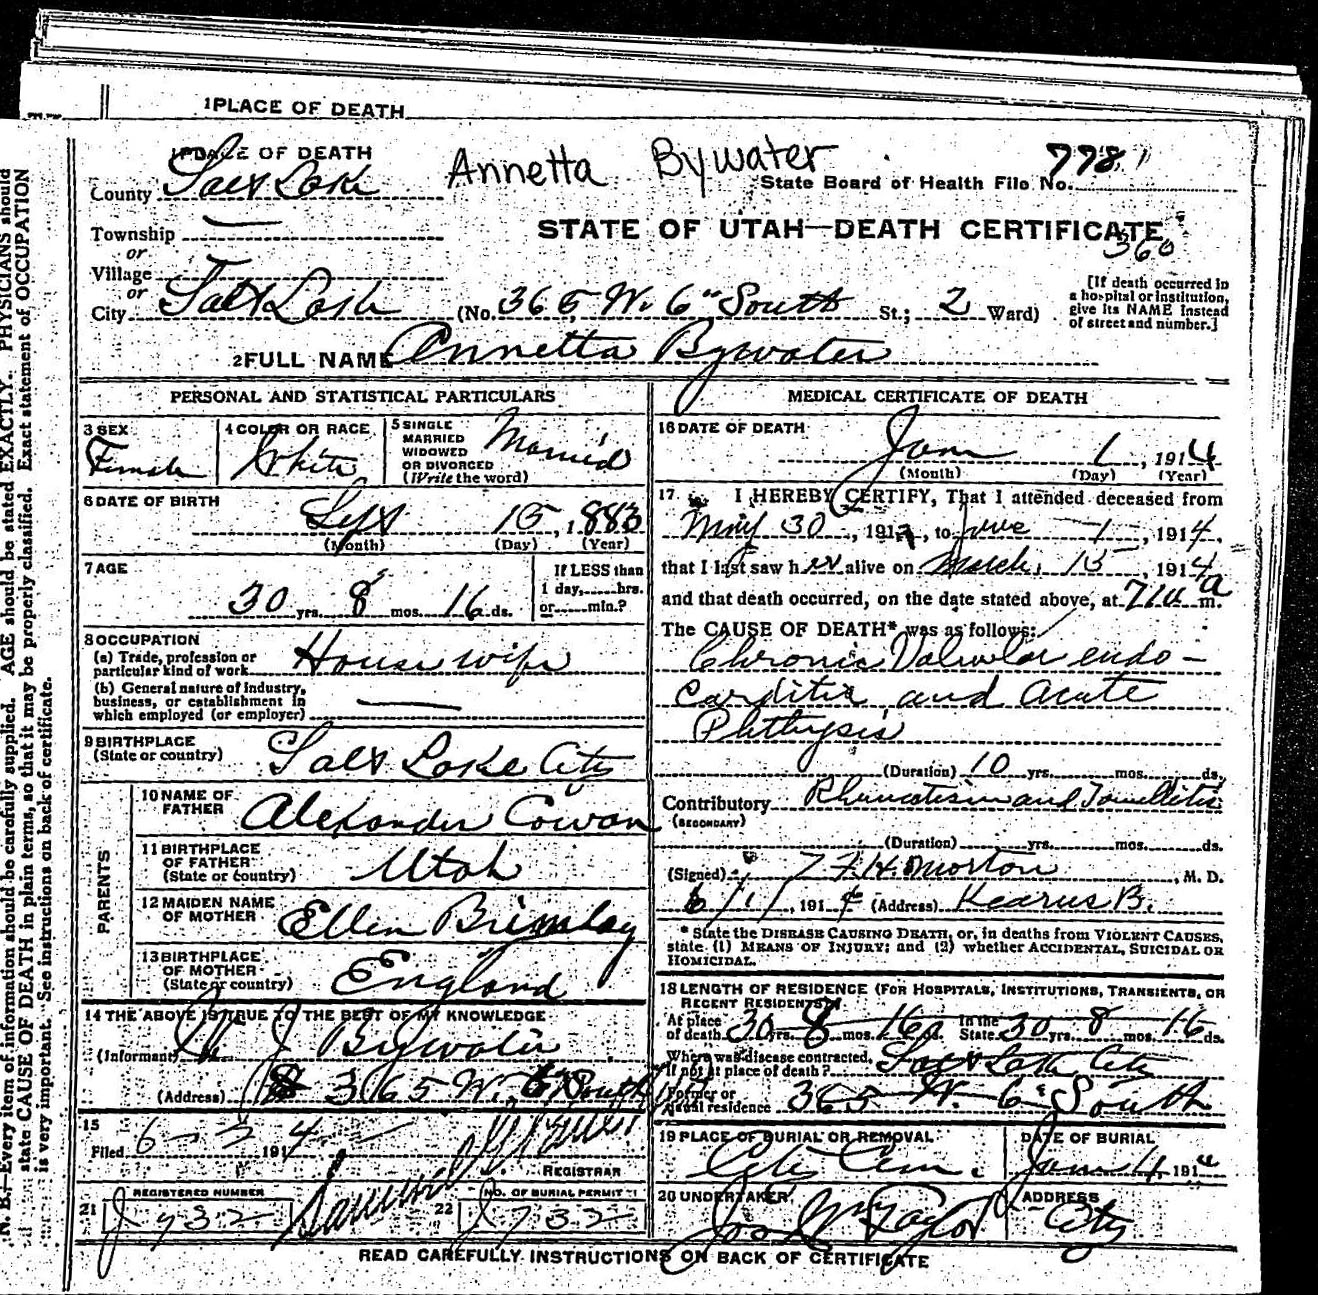 1 PLACE OF DEATH
1 PLACE OF DEATH
County Salt Lake
Annetta Bywater
778
State Board of Health File No.
Township
or
STATE OF UTAH—DEATH CERTIFICATE
360
Village
or
City Salt Lake (No. 365 W. 6" South St.; 2 Ward)
[If death occurred in a hospital or institution, give its NAME instead of street and number.]
2 FULL NAME Annetta Bywater
PERSONAL AND STATISTICAL PARTICULARS
3 SEX
Female
4 COLOR OR RACE
White
5 SINGLE
MARRIED
WIDOWED
OR DIVORCED
(Write the word)
Married
6 DATE OF BIRTH
15, 1883
(Month) (Day) (Year)
7 AGE
30 yrs. 8 mos. 16 ds.
If LESS than
1 day,......hrs.
or......min.?
8 OCCUPATION
(a) Trade, profession or
particular kind of work House wife
(b) General nature of industry,
business, or establishment in
which employed (or employer)
9 BIRTHPLACE
(State or country) Salt Lake City
PARENTS
10 NAME OF
FATHER Alexander Cowan
11 BIRTHPLACE
OF FATHER
(State or country) Utah
12 MAIDEN NAME
OF MOTHER Ellen
13 BIRTHPLACE
OF MOTHER
(State or country) England
14 THE ABOVE IS TRUE TO THE BEST OF MY KNOWLEDGE
(Informant) J Bywater
(Address) 365 W. 6" South
15
Filed 6 191 4
REGISTRAR
REGISTERED NUMBER
21
NO. OF BURIAL PERMIT
22
MEDICAL CERTIFICATE OF DEATH
16 DATE OF DEATH
1, 1914
(Month) (Day) (Year)
17 I HEREBY CERTIFY, That I attended deceased from
May 30, 191 , to June 1, 1914,
that I last saw her alive on March 15, 1914
and that death occurred, on the date stated above, at a m.
The CAUSE OF DEATH* was as follows:
Chronic Valvular endo-
carditis and acute
Phthysis
(Duration) 10 yrs. mos. ds.
Contributory Rhumatism and Tonsilitis
(SECONDARY)
(Duration) yrs. mos. ds.
(Signed) F. H. Morton, M. D.
6/1/, 1914 (Address) Kearns B.
* State the DISEASE CAUSING DEATH, or, in deaths from VIOLENT CAUSES,
state (1) MEANS OF INJURY; and (2) whether ACCIDENTAL, SUICIDAL OR
HOMICIDAL.
18 LENGTH OF RESIDENCE (FOR HOSPITALS, INSTITUTIONS, TRANSIENTS, OR
RECENT RESIDENTS)
At place of death 30 yrs. 8 mos. 16 ds. In the State 30 yrs. 8 mos. 16 ds.
Where was disease contracted,
if not at place of death? Salt Lake City
Former or
usual residence 365 W. 6 South
19 PLACE OF BURIAL OR REMOVAL
City Cem.
DATE OF BURIAL
4, 1914
20 UNDERTAKER
Jos Wm Taylor
ADDRESS
City
READ CAREFULLY INSTRUCTIONS ON BACK OF CERTIFICATE
N. B.—Every item of information should be carefully supplied. AGE should be stated EXACTLY. PHYSICIANS should
state CAUSE OF DEATH in plain terms, so that it may be properly classified. Exact statement of OCCUPATION
is very important. See instructions on back of certificate.